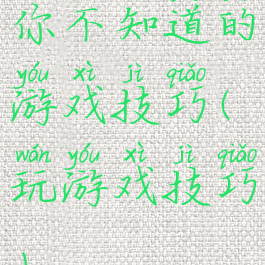 你不知道的
yóu xì jì qiǎo
游戏技巧(
wán yóu xì jì qiǎo
玩游戏技巧
)